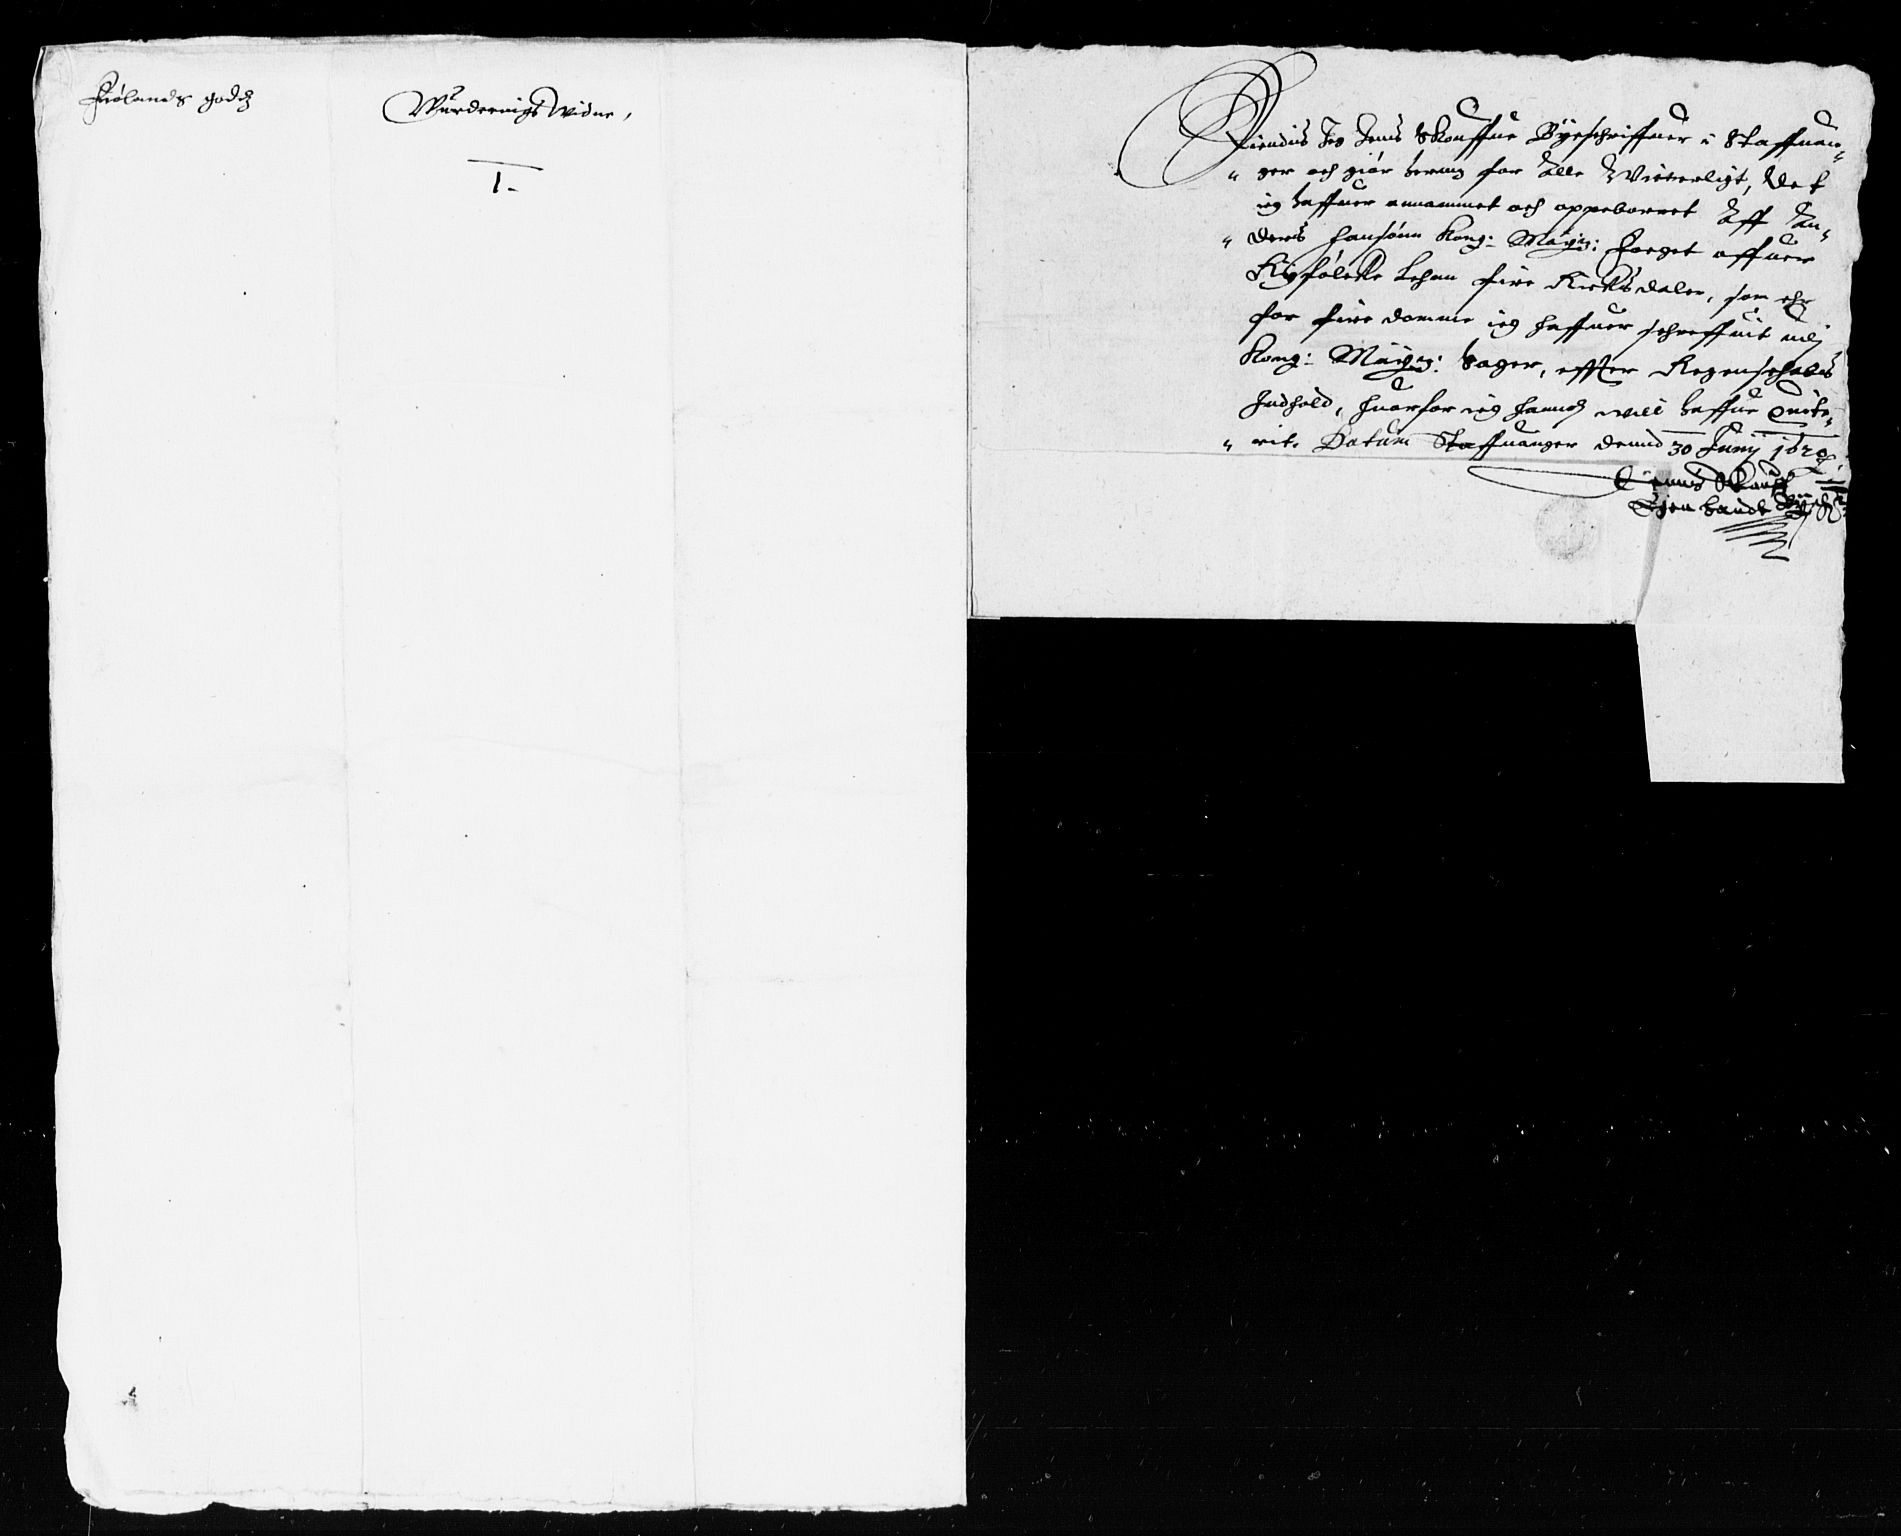 Fiølands godz
Wurderings Widne,
1.
Kiendis Jeg Jens Skouffue Byeschriffuer i Staffuan-
ger och giør hermz for Alle Witterligt, Att
ieg haffuer annammet och oppeborret Aff An-
ders Hansønn Kong: Mayz: Foeget offuer
Ryfølcke Lehnn fire Rixdaler, som ehr
for fire domme ieg haffuer schreffuit udj
Kong: Mayz: Sager, effter Regenschabs
Indhold, huorfor ieg hannem will haffue Quite-
rit. Datum Staffuanger dennd 30 Junij 1620
Jenns Skouff
Egen handt